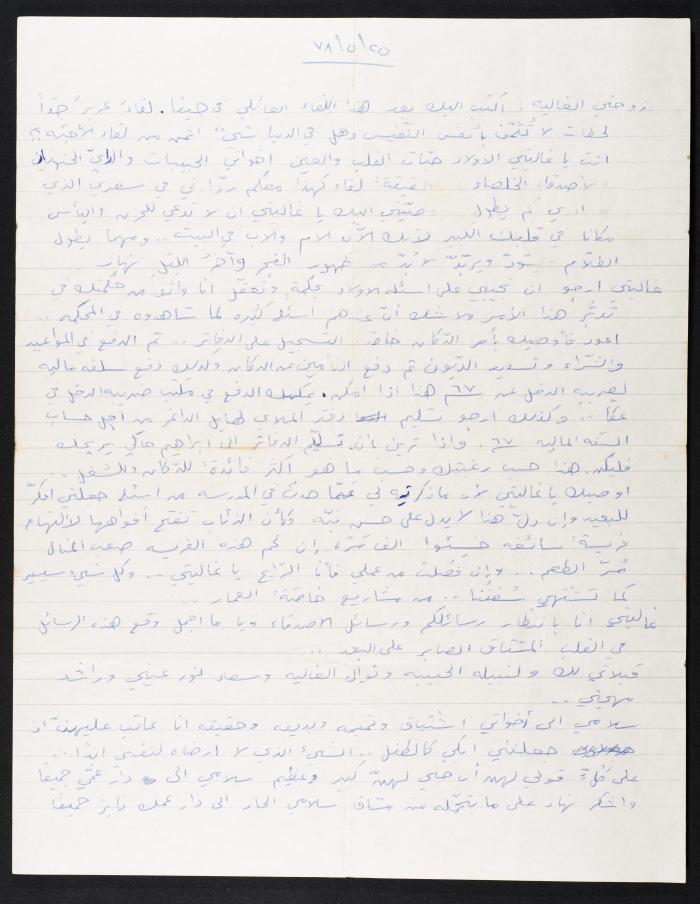 ٢٥/٥/٧٨
زوجتي الغاليه: اكتب اليك بعد هذا اللقاء العائلي في حيفا. لقاءٌ عزيزٌ جداً
لحظات لا تُثمَّن بأنفس النفيس وهل في الدنيا شيءٌ اثمن من لقاء الأحبّه؟؟
انت يا غاليتي الاولاد حبّات القلب والعين اخواتي الحبيبات والديّ
الأصدقاء الخلصاء حقيقةً لقاء كهذا معكم في سفري الذي
ادري كم يطول اليك يا غاليتي ان لا تدعي للحزن واليأس
مكانا في قلبك الكبير لأنك الآن الام والاب في البيت .. ومهما يطول
الظلام لابُدَّ من ظهور الفجر وآخرُ الليلِ نهار ..
غاليتي ارجو ان تجيبي على اسئلة الاولاد بحكمةٍ وتعقّل انا واثق من حكمتك في
تدبُّر هذا الأمر ولا شك أنّ عندهم اسئله كثيره لما شاهدوه في المحكمه ..
اعود فأوصيك بأمر الدكان خاصّة التسجيل على الدفاتر .. ثم الدفع في المواعيد
والشراء وتسديد الديون ثم دفع التأمين عن الدكان وكذلك دفع سلفه ماليه
لضريبة الدخل عن ٦٧ هذا اذا امكن. يمكنك الدفع في مكتب ضريبة الدخل في
عكا .. وكذلك ارجو تسليم دفتر من أجل حساب
السنه الماليه ٦٧. واذا ترين بأن تسليم الدفاتر الى ابراهيم يريحك
فليكن هذا حسب رغبتك وحسب ما هو اكثر فائدةً للدكان وللشغل ..
اوصيك يا غاليتي لأن ما ذكرتيه في عمّا حدث في المدرسه من اسئله جعلني افكرّ
للبعيد وإن دلَّ هذا لا يدل على حسن نيّه وكأن الذئاب تفتح أفواهها لالتهام
فريسةً سائغه خسئوا الف مَرّه إن لحم هذه الفريسه صعب المنال
مُرّ الطعم .. وإن فُصلت من عملي فأنا الرابح يا غاليتي .. وكل شيء يسير
كما تشتهي سُفُنُنا .. من مشاريع خاصّة العمار ..
غاليتي انا بانتظار رسائلكم ورسائل الاصدقاء ويا ما اجمل وقع هذه الرسائل
في القلب المشتاق الصابر على البعد ..
قبلاتي لك ولنبيله الحبيبه ونوال الغاليه وسعاد نور عيني وراشد
مهجتي ..
سلامي الى أخواتي اشتياق ونعيمه وبديعه وحقيقه انا عاتب عليهنّ اذ
جعلنني ابكي كالطفل .. الشيء الذي لا ارضاه لنفسي ابداً ..
على كُلٍّ قولي لهن أن حبي لهنّ كبير وعظيم سلامي الى دار عمّي جميعًا
واشكر نهاد على ما يتحمّله من مشاق سلامي الحار الى دار عمك فايز جميعًا